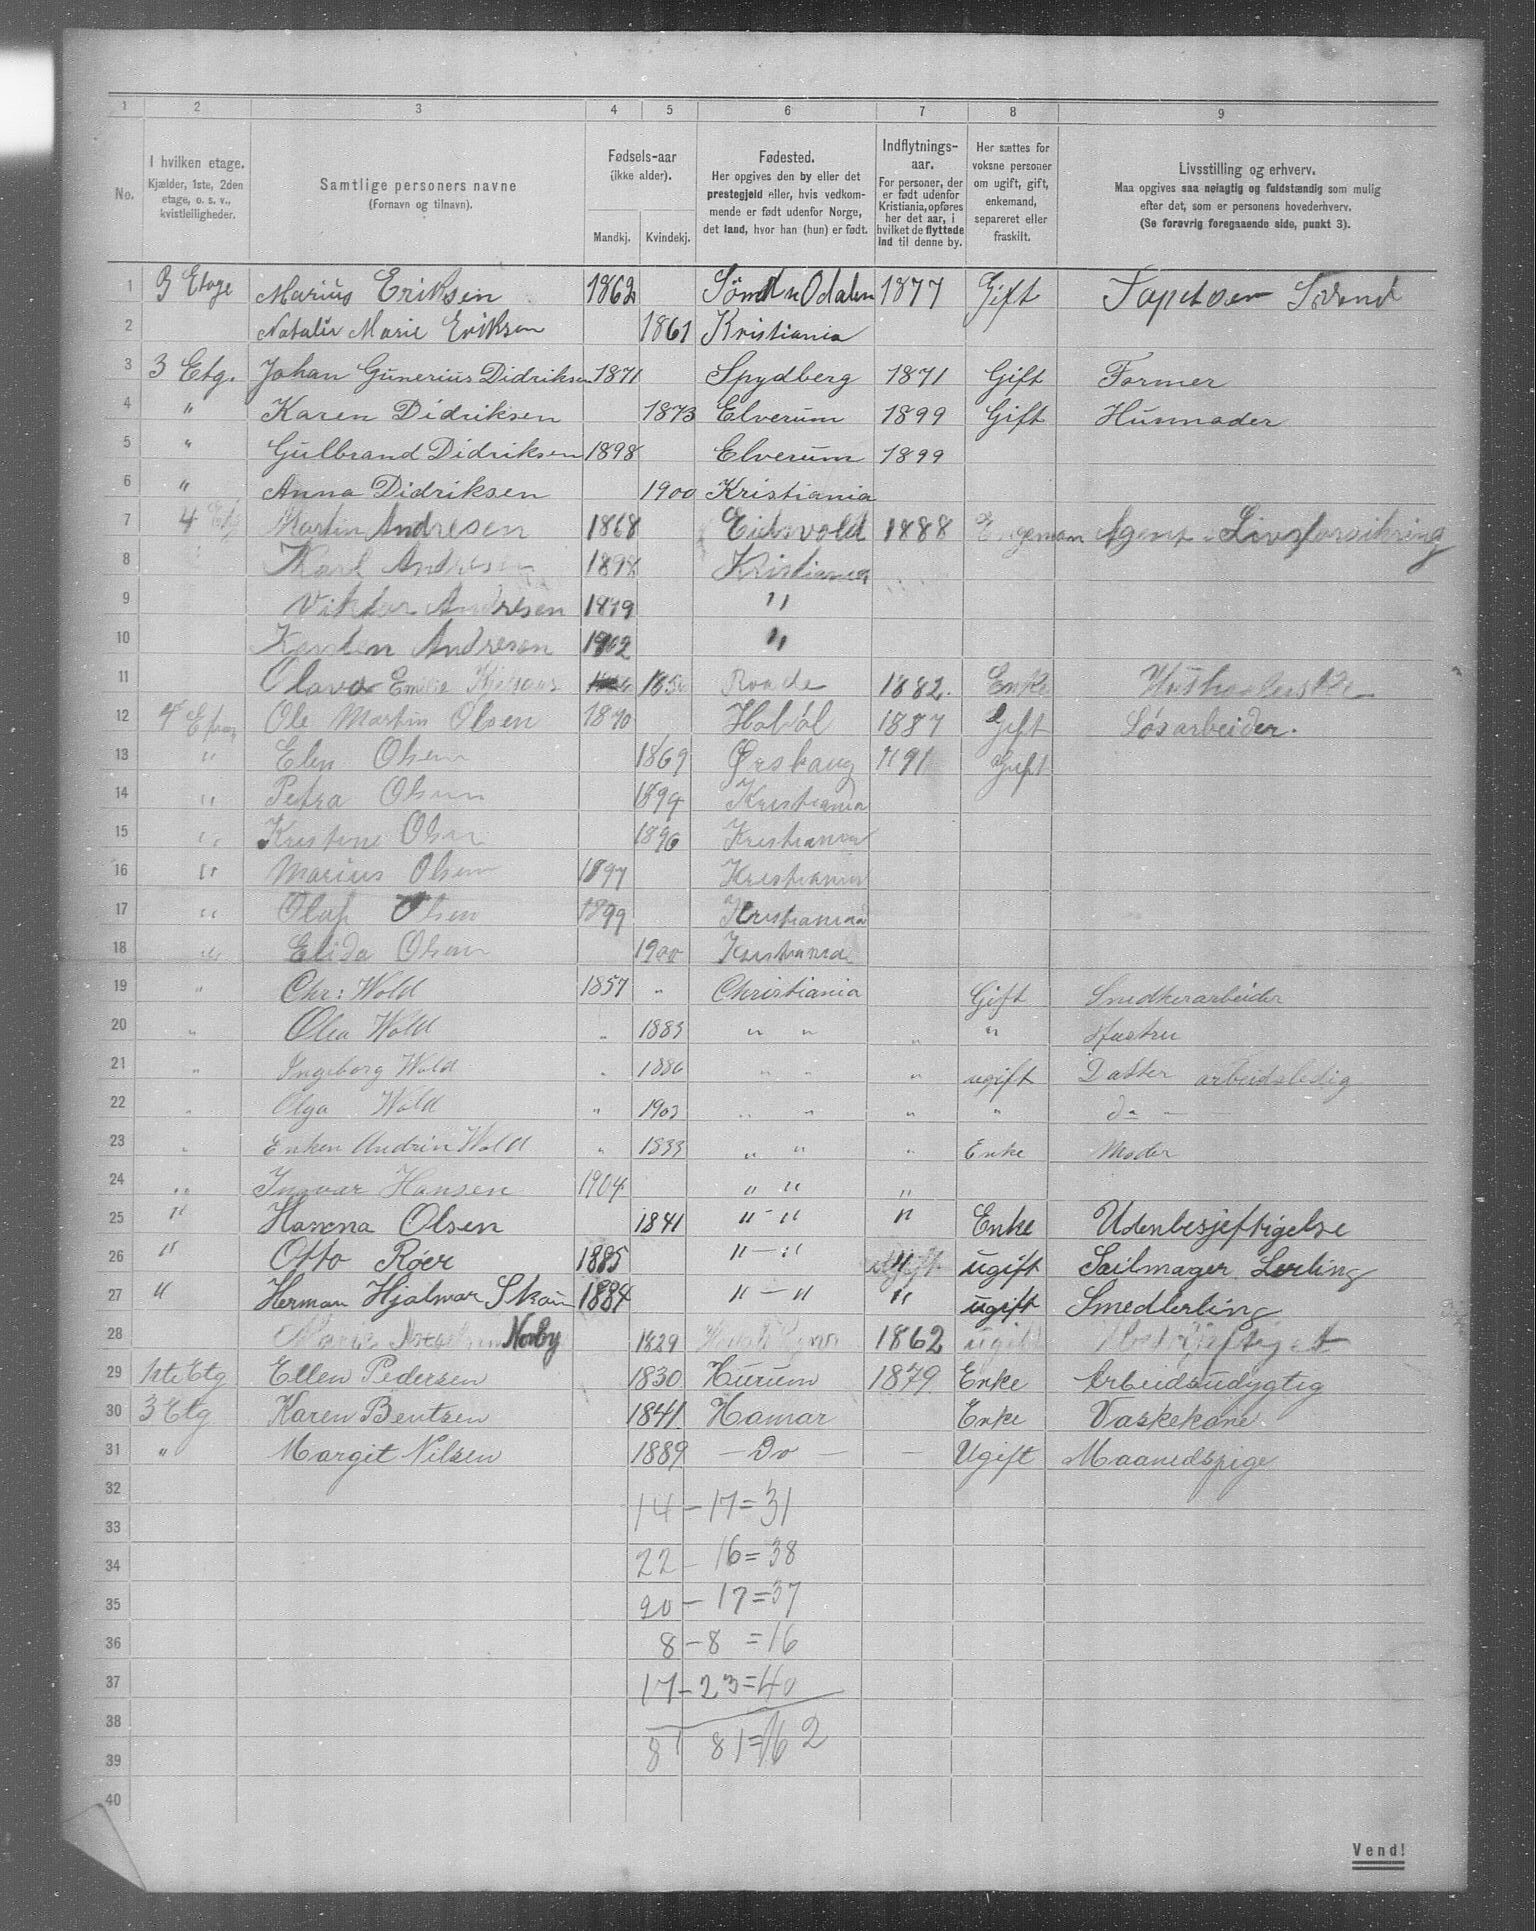 1 2 3 4 5 6 7 8 9
No.
I hvilken etage.
Kjælder, 1ste, 2den
etage, o. s. v.,
kvistleiligheder.
Samtlige personers navne
(Fornavn og tilnavn).
Fødsels-aar
(ikke alder).
Mandkj. Kvindekj.
Fødested.
Her opgives den by eller det
prestegjeld eller, hvis vedkom-
mende er født udenfor Norge,
det land, hvor han (hun) er født.
Indflytnings-
aar.
For personer, der
er født udenfor
Kristiania, opføres
her det aar, i
hvilket de flyttede
ind til denne by.
Her sættes for
voksne personer
om ugift, gift,
enkemand,
separeret eller
fraskilt.
Livsstilling og erhverv.
Maa opgives saa nøiagtig og fuldstændig som mulig
efter det, som er personens hovederhverv.
(Se forøvrig foregaaende side, punkt 3).
1 3 Etage Marius Eriksen 1862 Odalen 1877 Gift
2 Natalie Marie Eriksen 1861 Kristiania
3 3 Etg. Johan Gunerius Didriksen 1871 Spydberg 1871 Gift Former
4 " Karen Didriksen 1873 Elverum 1899 Gift
5 " Gulbrand Didriksen 1898 Elverum 1899
6 " Anna Didriksen 1900 Kristiania
7 4 Etg Martin Andresen 1868 Eidsvold 1888 Agent Livsforsikring
8 Karl Andresen 1898 Kristiania
9 Viktor Andresen 1899 "
10 Karsten Andresen 1902 "
11 Olava Emilie 1856 Raade 1882. Enke
12 4 Ole Martin Olsen 1870 Hobøl 1887 Gift Løsarbeider.
13 " Elen Olsen 1869 Ørskaug 1891 Gift
14 " Petra Olsen 1894 Kristiania
15 " Kristine Olsen 1896 Kristiania
16 " Marius Olsen 1897 Kristiania
17 " Olaf Olsen 1899 Kristiania
18 " Elida Olsen 1900 Kristiania
19 " Chr: Wold 1857 " Christiania Gift Snedkerarbeider
20 " Olea Wold " 1883 " " " " Hustru
21 " Ingeborg Wold " 1886 " " " ugift Datter arbeidsledig
22 " Olga Wold " 1903 " " " " do -
23 " Enken Andrin Wold " 1833 " " " Enke Moder
24 " Ingvar Hansen 1904 " " "
25 " Hanna Olsen 1841 " - " " Enke Udenbesjeftigelse
26 " Otto Röer 1885 " - " " ugift Sailmager Lerling
27 " Herman Hjalmar Skau 1884 " - " " ugift Smedlerling
28 Marie Norby 1829 1862 ugift
29 1ste Etg Ellen Pedersen 1830 Hurum 1879 Enke Arbeidsudygtig
30 3 Etg Karen Bentsen 1841 Hamar Enke Vaskekone
31 " Margit Nilsen 1889 - Do - - Ugift Maanedspige
32 14 - 17 = 31
33
34 22 - 16 = 38
35 20 - 17 = 37
36 8 - 8 = 16
37 17 - 23 = 40
38
39 81 81 = 162
40
Vend!